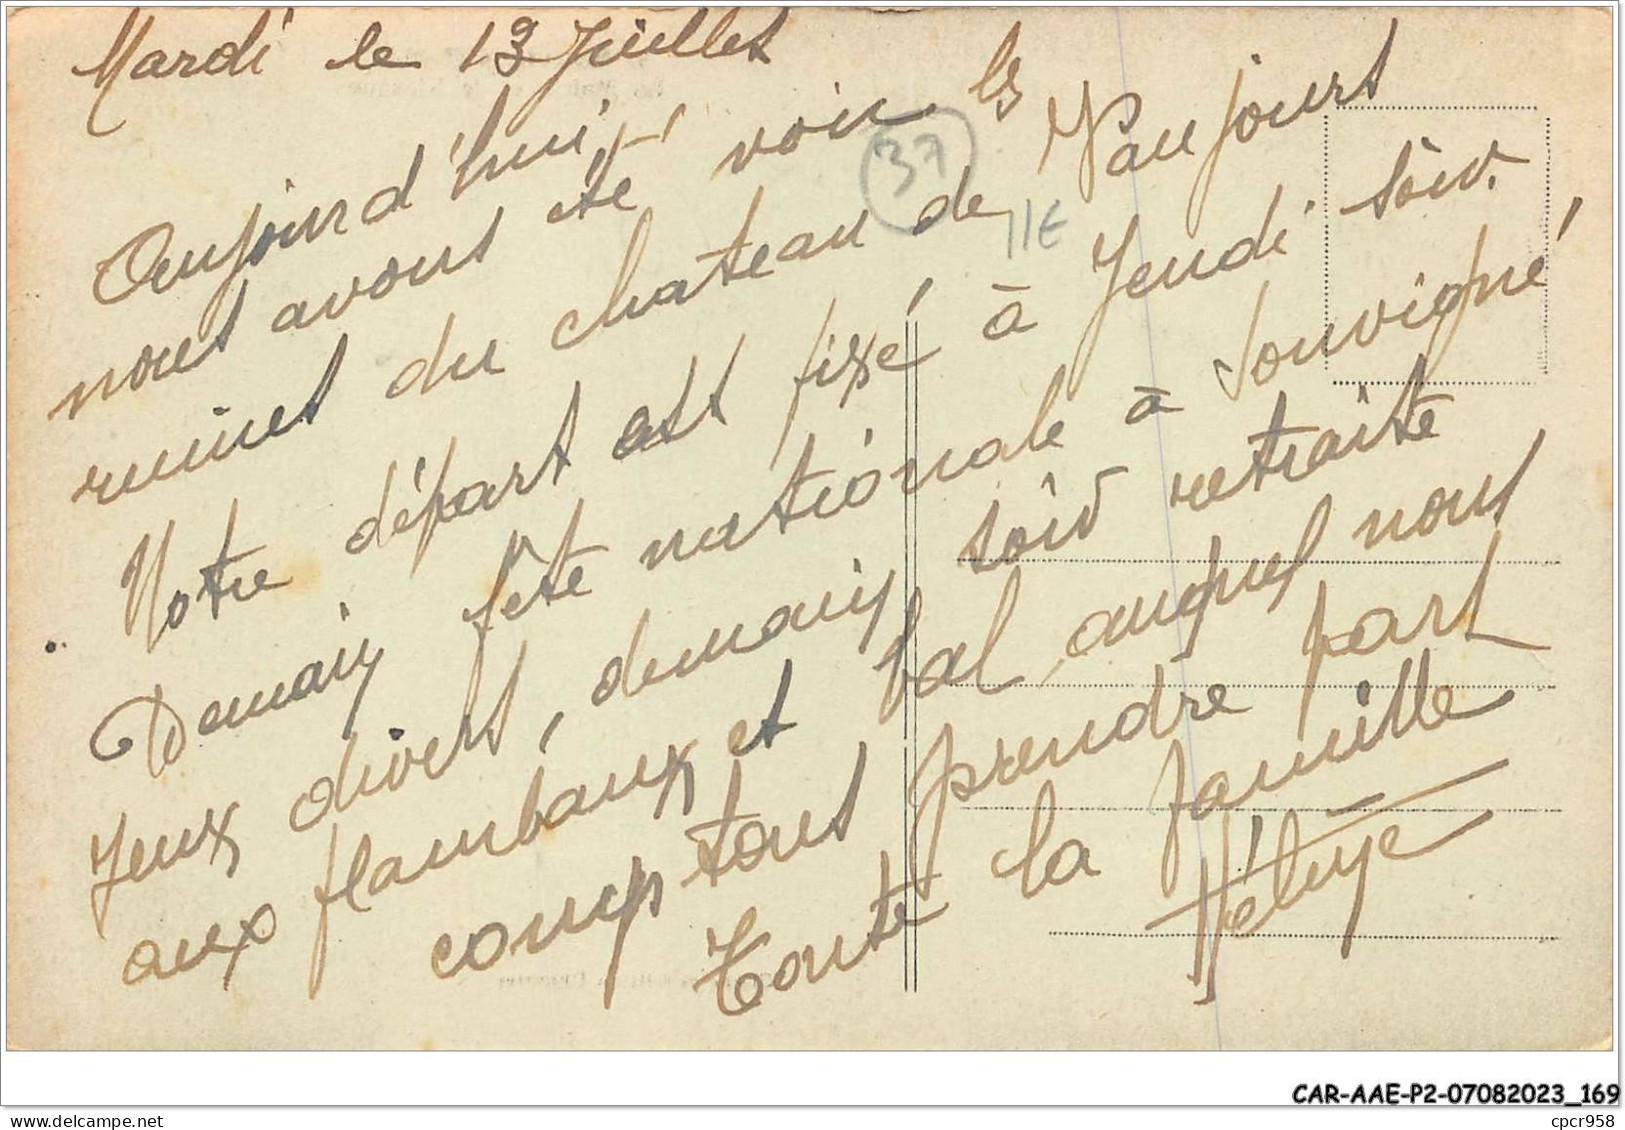 Mardi le 13 Juillet
Aujourd'hui,
nous avons été voir les
ruines du chateau de Vaujours
Notre départ est fixé à Jeudi soir.
Demain fête nationale à Souvigné,
Jeux divers, demain soir retraite
aux flambeaux et bal auquel nous
comptons prendre part
Toute la famille
37
11E
CAR-AAE-P2-07082023_169
cpcr958